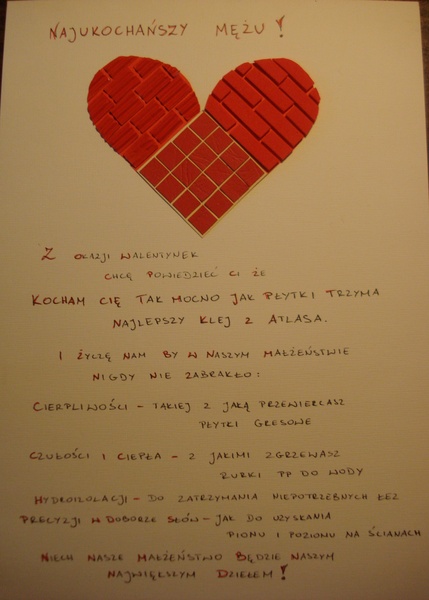 NAJUKOCHAŃSZY MĘŻU!
Z OKAZJI WALENTYNEK
CHCĘ POWIEDZIEĆ CI ŻE
KOCHAM CIĘ TAK MOCNO JAK PŁYTKI TRZYMA
NAJLEPSZY KLEJ Z ATLASA.
I ŻYCZĘ NAM BY W NASZYM MAŁŻEŃSTWIE
NIGDY NIE ZABRAKŁO:
CIERPLIWOŚCI - TAKIEJ Z JAKĄ PRZEWIERCASZ
PŁYTKI GRESOWE
CZUŁOŚCI I CIEPŁA - Z JAKIMI ZGRZEWASZ
RURKI PP DO WODY
HYDROIZOLACJI - DO ZATRZYMANIA NIEPOTRZEBNYCH ŁEZ
PRECYZJI W DOBORZE SŁÓW - JAK DO UZYSKANIA
PIONU I POZIOMU NA ŚCIANACH
NIECH NASZE MAŁŻEŃSTWO BĘDZIE NASZYM
NAJWIĘKSZYM DZIEŁEM!